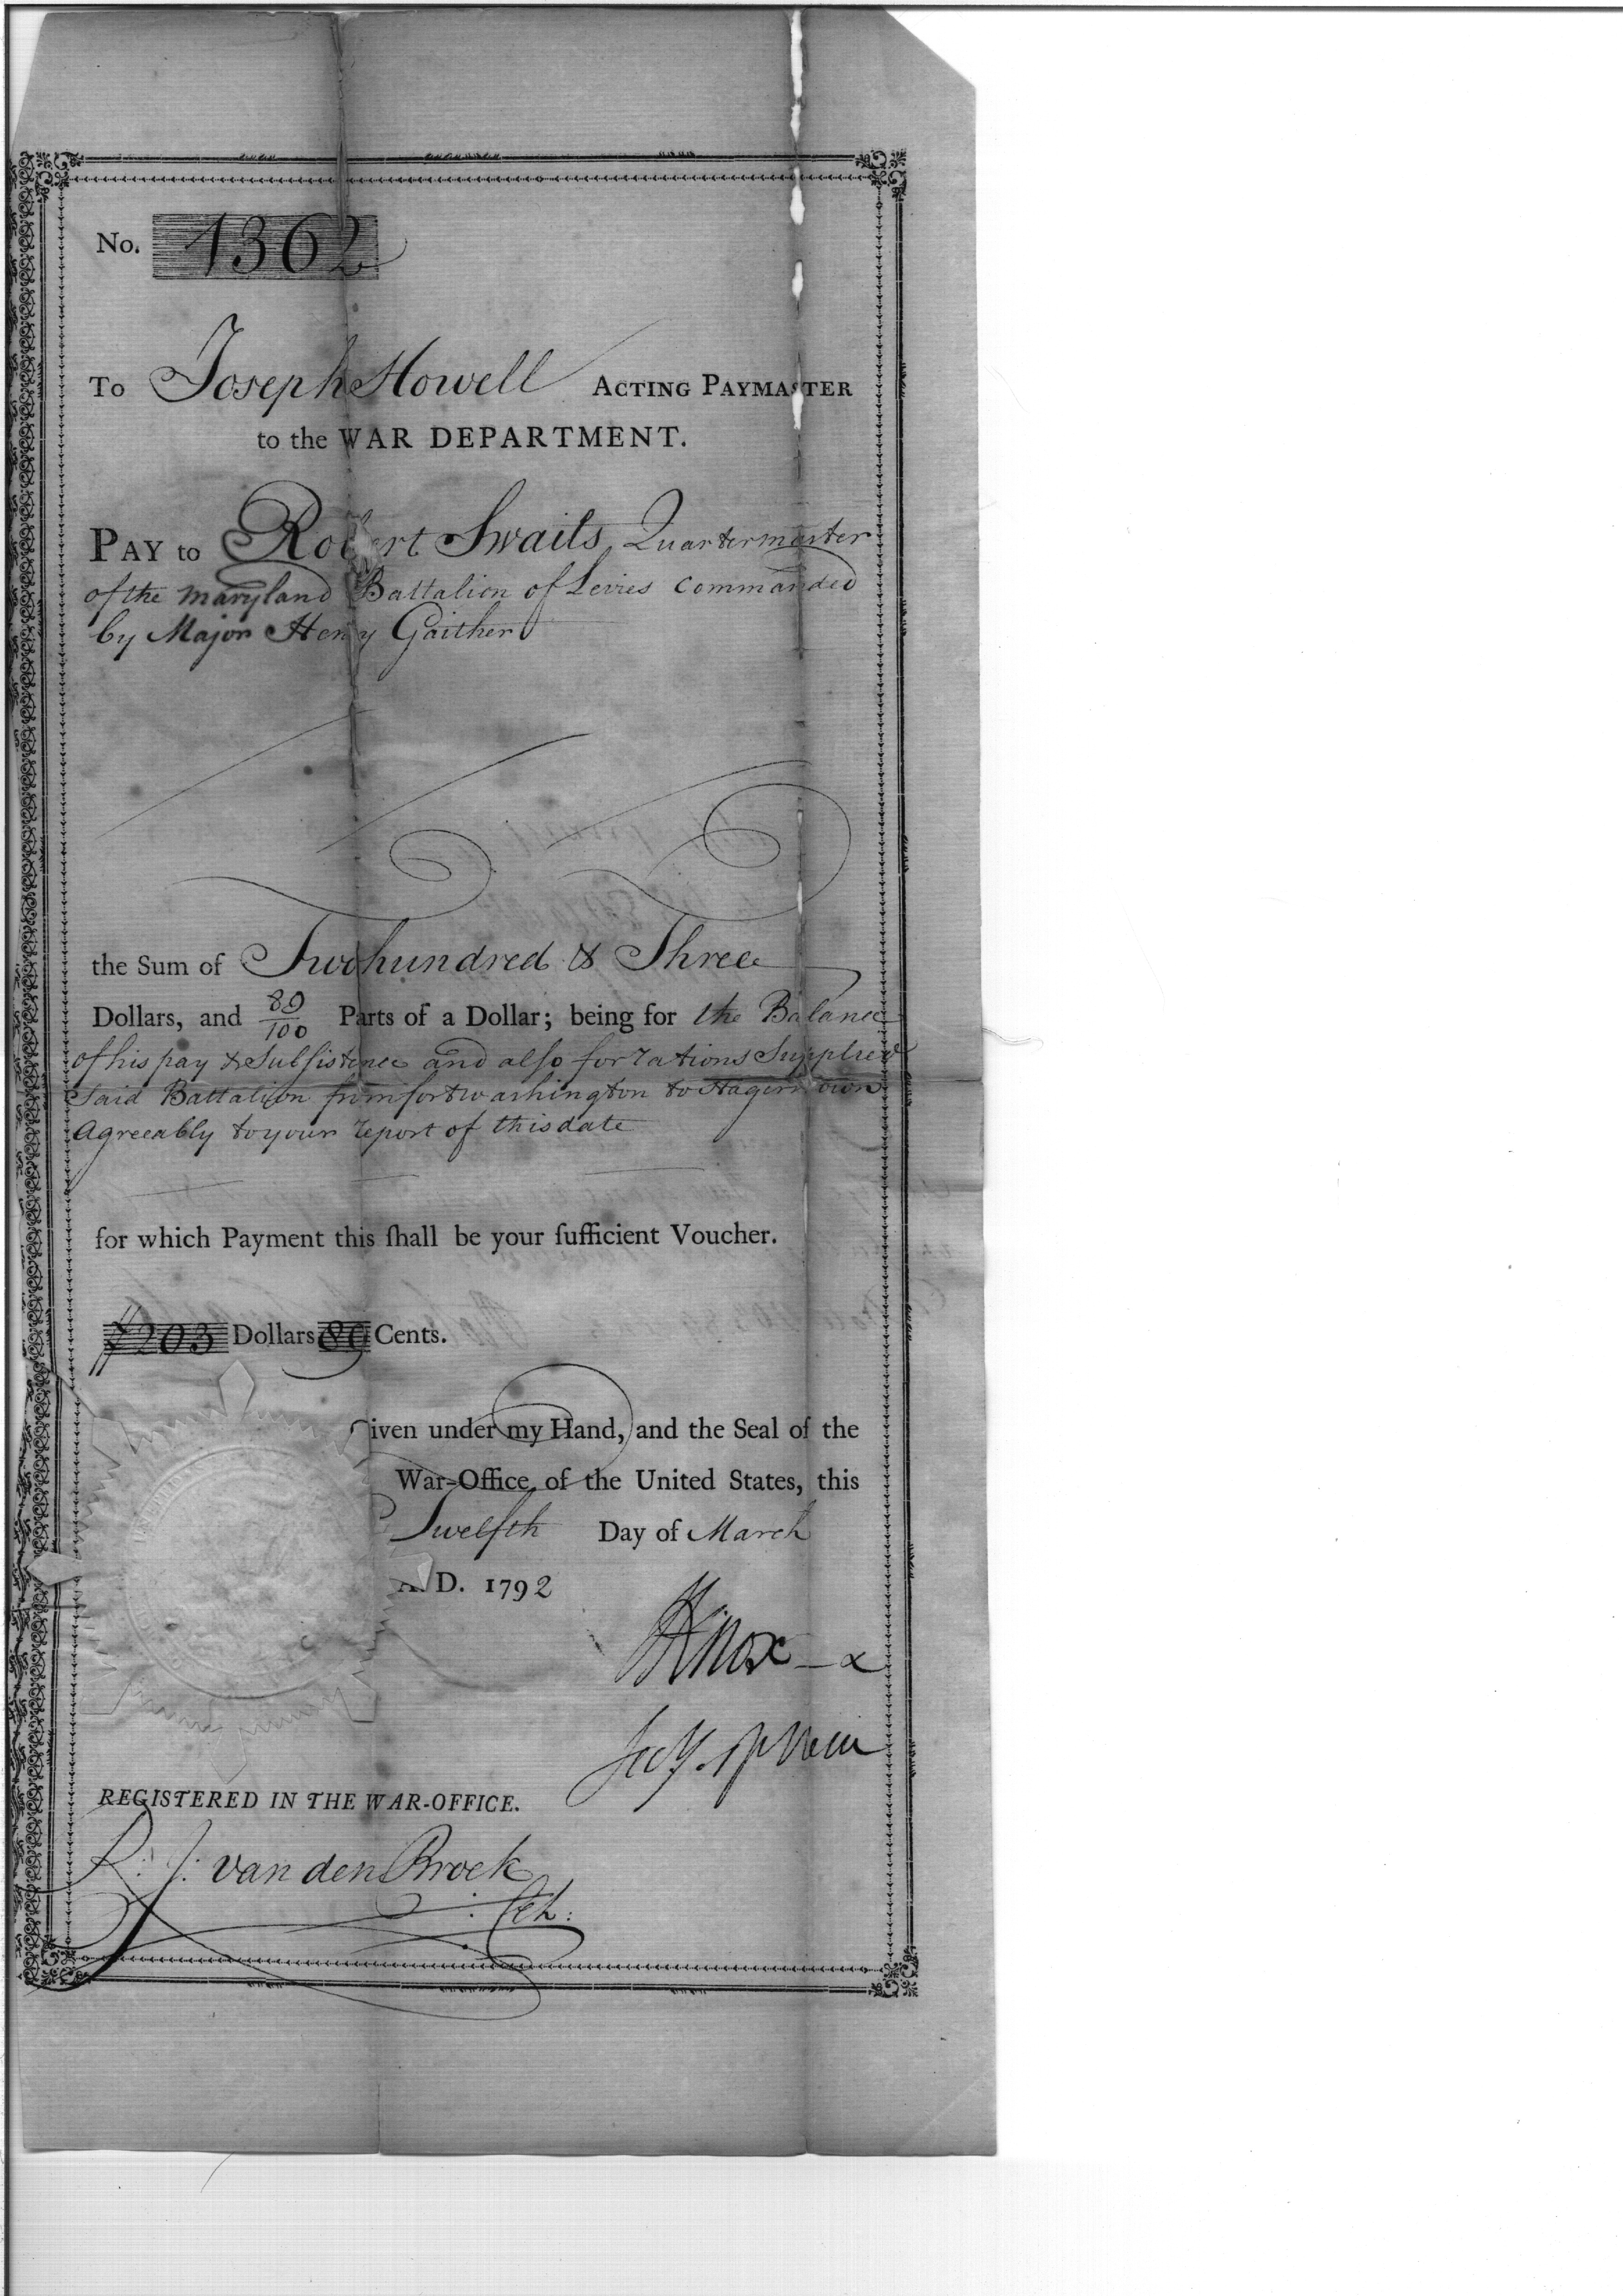 No. 1362
To Joseph Howell ACTING PAYMASTER
to the WAR DEPARTMENT.
PAY to Robert Swaits, Quartermaster
of the Maryland Battalion of Levies Commanded
by Major Henry Gaither
the Sum of Two hundred & Three
Dollars, and 89/100 Parts of a Dollar; being for the Balance
of his pay & Subsistence and also for rations Supplied
Said Battalion from fort washington to Hagerstown
Agreeably to your report of this date
for which Payment this ſhall be your ſufficient Voucher.
$203 Dollars 89 Cents.
Given under my Hand, and the Seal of the
War-Office of the United States, this
Twelfth Day of March
A. D. 1792
HKnox
Secy of War
REGISTERED IN THE WAR-OFFICE.
R: J: van den Broek